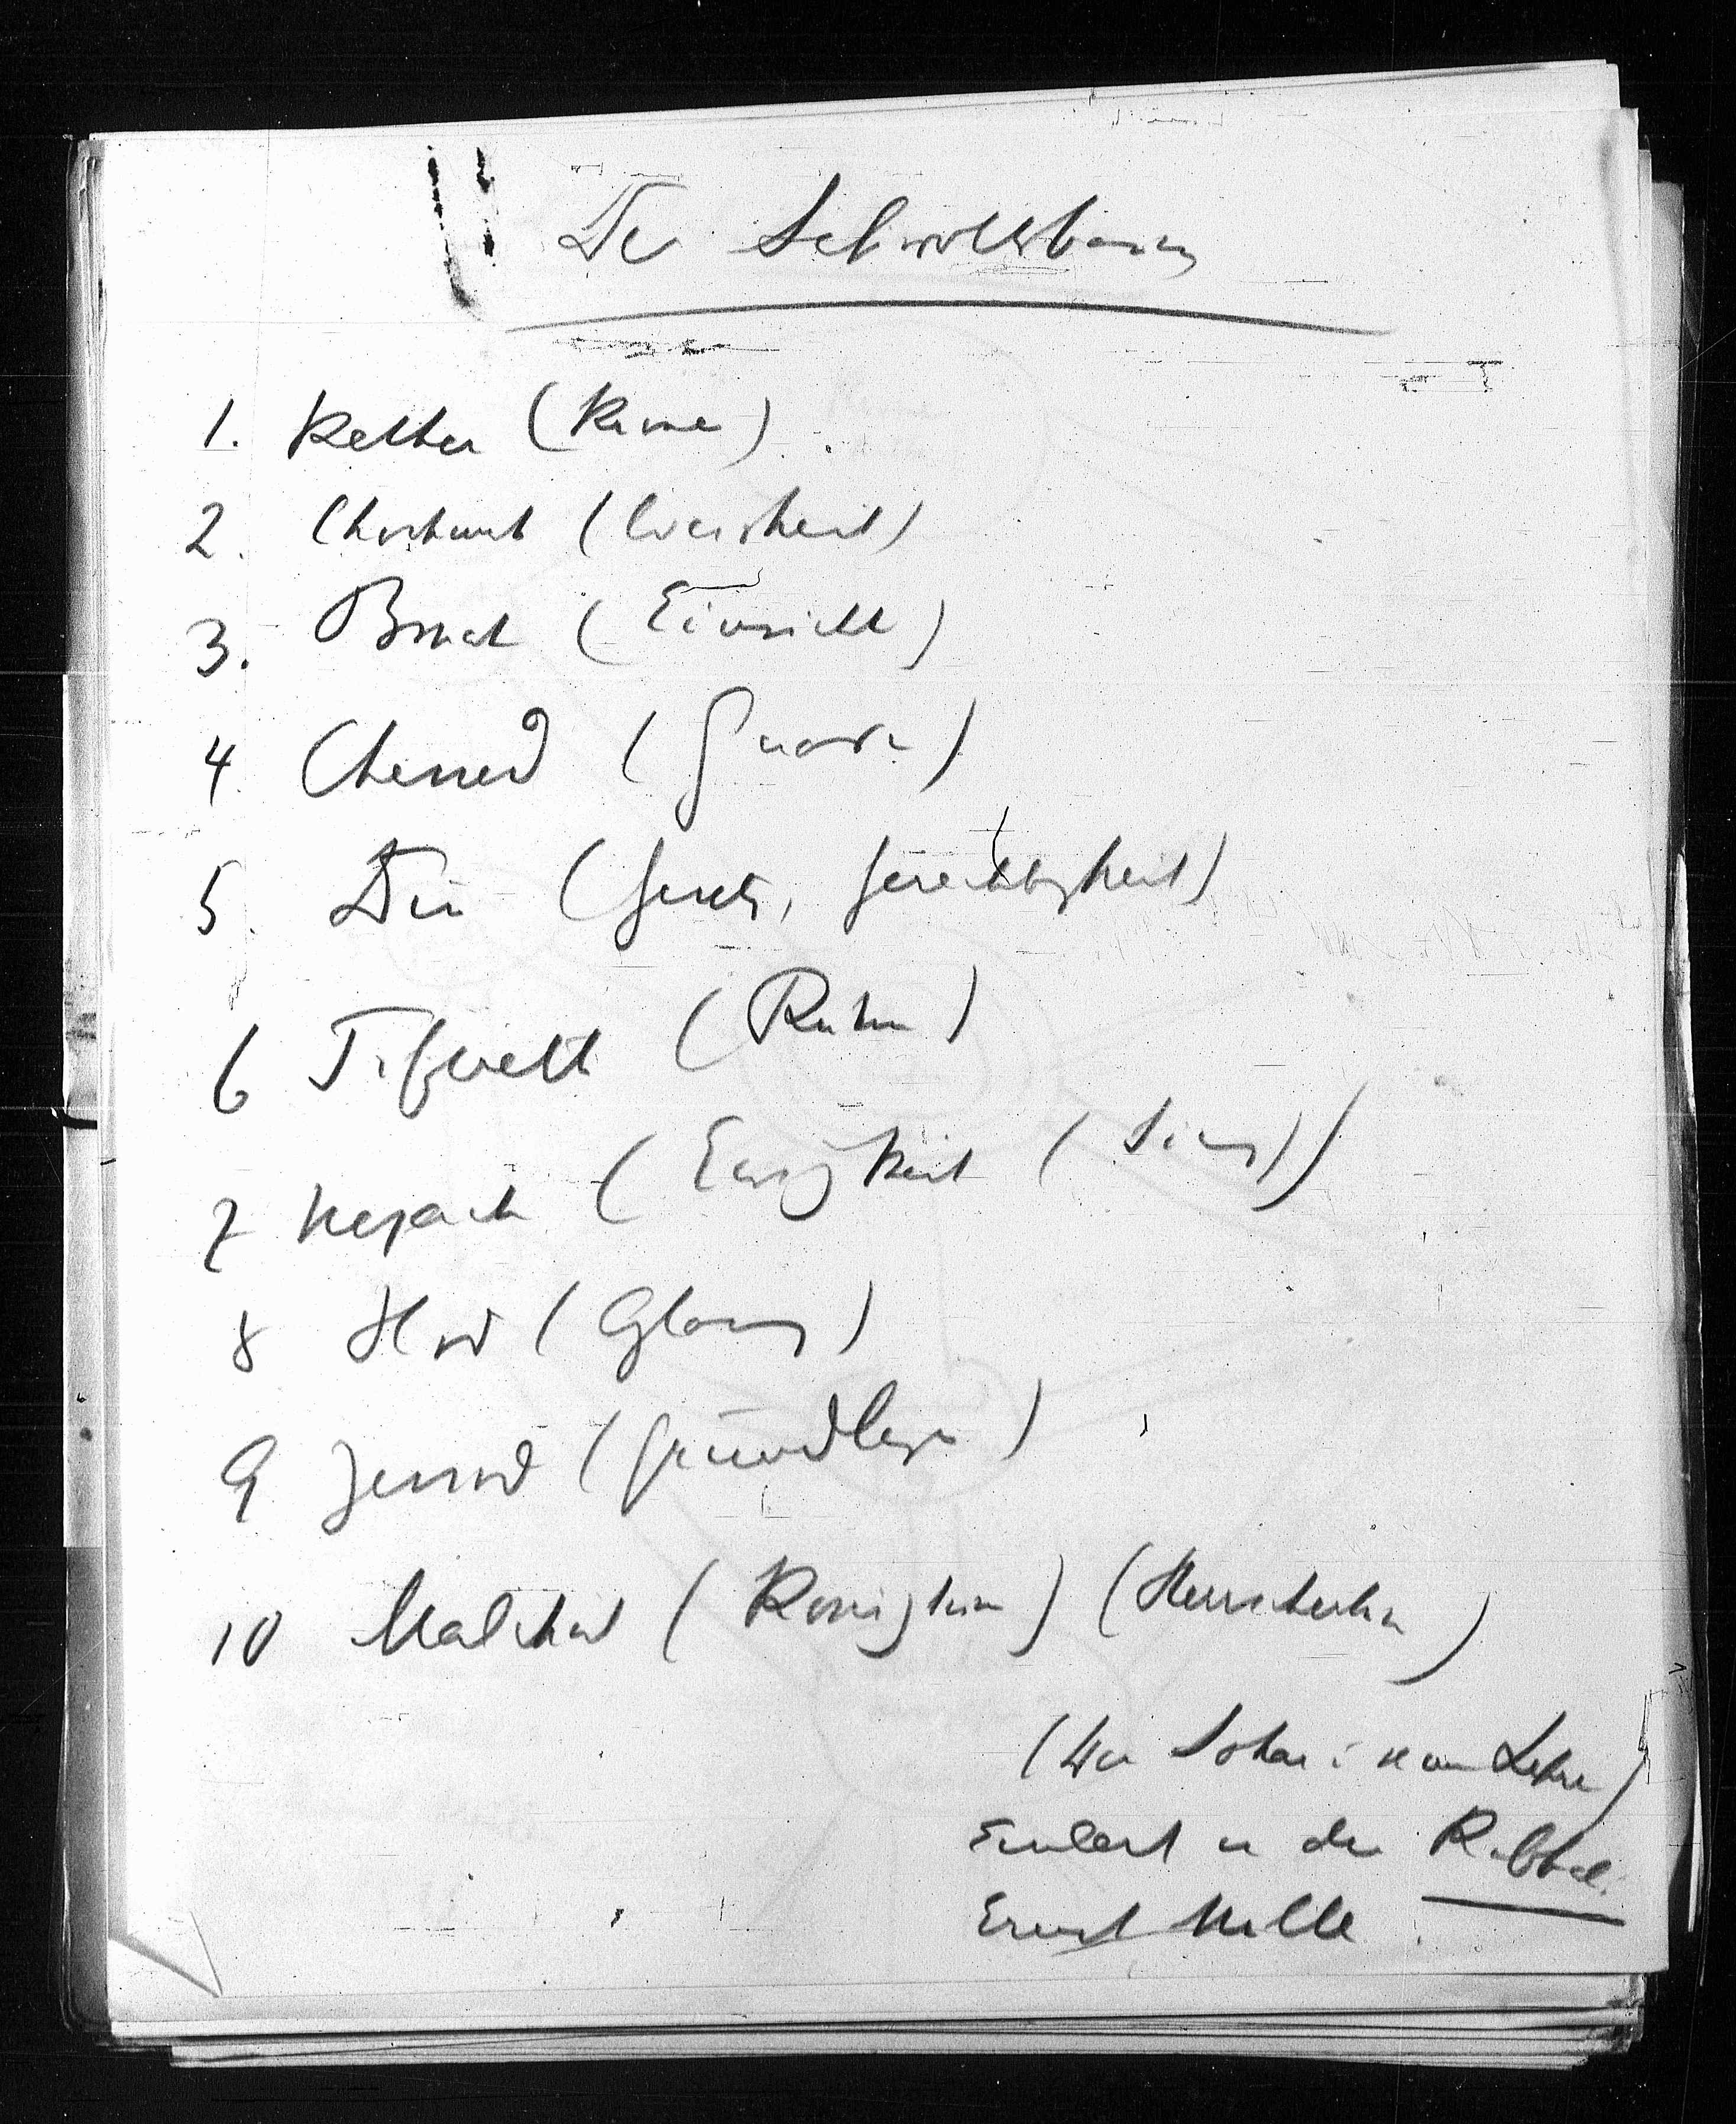 Der Sephirothbaum
1. Kether (Krone)
2. Chochmah (Weisheit)
3. Binah (Einsicht)
4 Chessed (Gnade)
5. Din (Gericht, Gerechtigkeit)
6 Tifereth (Ruhm)
7 Nezach (Ewigkeit (Sieg))
8 Hod (Glanz)
9 Jessod (Grundlage)
10 Malchut (Königtum) (Herrscherin)
(Der Sohar: seine Lehre)
in der Kabbal.
Ernst Müller